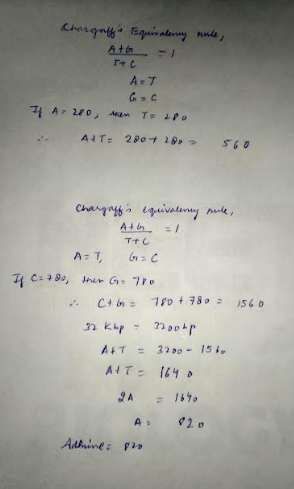 Chargaff's Equivalency rule,
A+G
T+C = 1
A=T
G=C
If A=280, then T=280
∴ A+T= 280+280= 560
Chargaff's equivalency rule,
A+G
T+C = 1
A=T, G=C
If C=780, then G=780
∴ C+G= 780+780= 1560
32 Kbp = 3200bp
A+T = 3200-1560
A+T = 1640
2A = 1640
A= 820
Adenine= 820